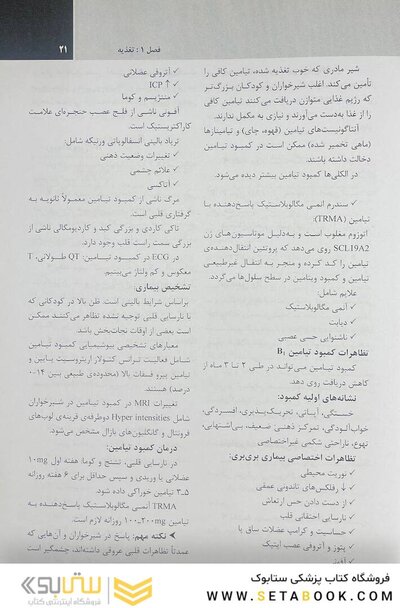 فصل ۱: تغذیه
۲۱
شیر مادری که خوب تغذیه شده، تیامین کافی را
تأمین می‌کند. اغلب شیرخواران و کودکان بزرگ‌تر
که رژیم غذایی متوازن دریافت می‌کنند تیامین کافی
را از غذا به‌دست می‌آورند و نیازی به مکمل ندارند.
آنتاگونیست‌های تیامین (قهوه، چای) و تیامینازها
(ماهی تخمیر شده) ممکن است در کمبود تیامین
دخالت داشته باشند.
در الکلی‌ها کمبود تیامین بیشتر دیده می‌شود.
✓ سندرم آنمی مگالوبلاستیک پاسخ‌دهنده با
تیامین (TRMA):
اتوزوم مغلوب است و به‌دلیل موتاسیون‌های ژن
SCL19A2 روی می‌دهد که پروتئین انتقال‌دهنده‌ی
تیامین را کد کرده و منجر به انتقال غیرطبیعی
تیامین و کمبود ویتامین در سطح سلول‌ها می‌گردد.
علایم شامل:
✓ آنمی مگالوبلاستیک
✓ دیابت
✓ ناشنوایی حسی عصبی
تظاهرات کمبود تیامین B₁
کمبود تیامین می‌تواند در طی ۲ تا ۳ ماه از
کاهش دریافت روی دهد.
نشانه‌های اولیه کمبود:
خستگی، آپاتی، تحریک‌پذیری، افسردگی،
خواب‌آلودگی، تمرکز ذهنی ضعیف، بی‌اشتهایی،
تهوع، ناراحتی شکمی غیراختصاصی
تظاهرات اختصاصی بیماری بری‌بری:
✓ نوریت محیطی
✓ ↓ رفلکس‌های تاندونی عمقی
✓ از دست دادن حس ارتعاش
✓ نارسایی احتقانی قلب
✓ حساسیت و کرامپ عضلات ساق پا
✓ پتوز و آتروفی عصب اپتیک
✓ آتروفی عضلانی
✓ ↑ ICP
✓ مننژیسم و کوما
آفونی ناشی از فلج عصب حنجره‌ای علامت
کاراکتریستیک است.
تریاد بالینی آنسفالوپاتی ورنیکه شامل:
✓ تغییرات وضعیت ذهنی
✓ علائم چشمی
✓ آتاکسی
مرگ ناشی از کمبود تیامین معمولاً ثانویه به
گرفتاری قلبی است.
تاکی کاردی و بزرگی کبد و کاردیومگالی ناشی از
بزرگی سمت راست قلب وجود دارد.
در ECG در کمبود تیامین: QT طولانی، T
معکوس و کم ولتاژ می‌بینیم.
تشخیص بیماری:
براساس شرایط بالینی است. ظن بالا در کودکانی که
با نارسایی قلبی توجیه نشده تظاهر می‌کنند ممکن
است بعضی از اوقات نجات‌بخش باشد.
معیارهای تشخیصی بیوشیمیایی کمبود تیامین
شامل فعالیت ترانس کتولاز اریتروسیت پایین و
تیامین پیرو فسفات بالا (محدوده‌ی طبیعی بین ۱۴-۰
درصد) هستند.
تغییرات MRI در کمبود تیامین در شیرخواران
شامل Hyper intensities دوطرفه‌ی قرینه‌ی لوب‌های
فرونتال و گانگلیون‌های بازال مشخص می‌شود.
درمان کمبود تیامین:
در نارسایی قلبی، تشنج و کوما: هفته اول ۱۰mg
عضلانی یا وریدی و سپس حداقل برای ۶ هفته روزانه
۳ـ۵ تیامین خوراکی داده شود.
TRMA آنمی مگالوبلاستیک پاسخ‌دهنده به
تیامین ۲۰۰mg-۱۰۰ روزانه لازم است.
نکته مهم: پاسخ در شیرخواران و آن‌هایی که
عمدتاً تظاهرات قلبی عروقی داشته‌اند، چشمگیر است
فروشگاه کتاب پزشکی ستابوک
WWW.SETABOOK.COM
ستابوک
فروشگاه اینترنتی کتاب